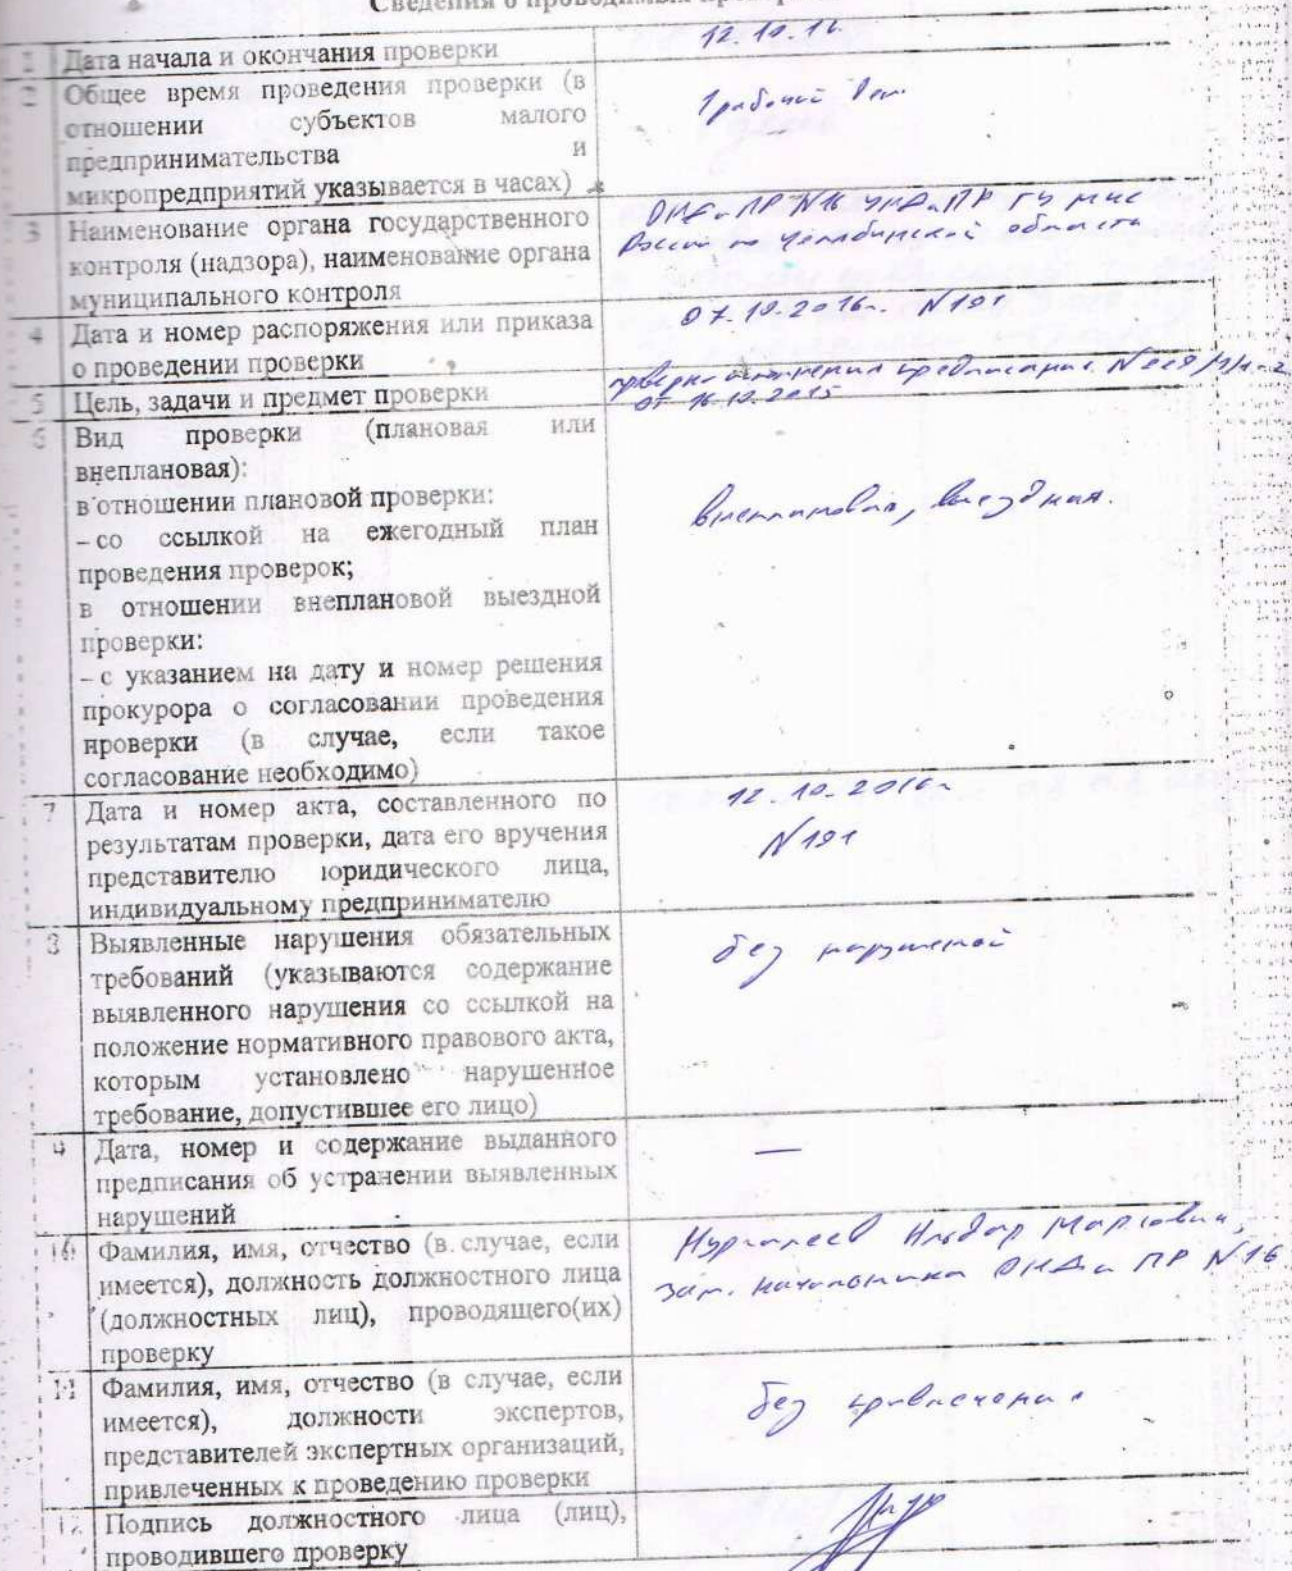 Сведения о проводимых
1 Дата начала и окончания проверки
12.10.16.
2 Общее время проведения проверки (в
отношении субъектов малого
предпринимательства и
микропредприятий указывается в часах)
1 рабочий день
3 Наименование органа государственного
контроля (надзора), наименование органа
муниципального контроля
ОНДиПР №16 УНДиПР ГУ МЧС
России по Челябинской области
4 Дата и номер распоряжения или приказа
о проведении проверки
07.10.2016г. №191
5 Цель, задачи и предмет проверки
проверка исполнения предписания
от 16.12.2015
6 Вид проверки (плановая или
внеплановая):
в отношении плановой проверки:
– со ссылкой на ежегодный план
проведения проверок;
в отношении внеплановой выездной
проверки:
– с указанием на дату и номер решения
прокурора о согласовании проведения
проверки (в случае, если такое
согласование необходимо)
внеплановая, выездная.
7 Дата и номер акта, составленного по
результатам проверки, дата его вручения
представителю юридического лица,
индивидуальному предпринимателю
12.10.2016г
№191
8 Выявленные нарушения обязательных
требований (указываются содержание
выявленного нарушения со ссылкой на
положение нормативного правового акта,
которым установлено нарушенное
требование, допустившее его лицо)
без нарушений
9 Дата, номер и содержание выданного
предписания об устранении выявленных
нарушений
—
10 Фамилия, имя, отчество (в случае, если
имеется), должность должностного лица
(должностных лиц), проводящего(их)
проверку
Нургалеев Ильдар Марсович,
зам. начальника ОНДи ПР №16
11 Фамилия, имя, отчество (в случае, если
имеется), должности экспертов,
представителей экспертных организаций,
привлеченных к проведению проверки
без привлечения
12 Подпись должностного лица (лиц),
проводившего проверку